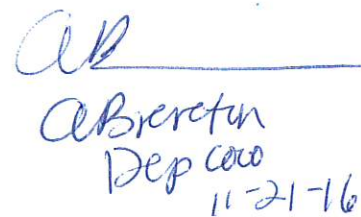 AB
ABrereton
Dep COCO
11-21-16